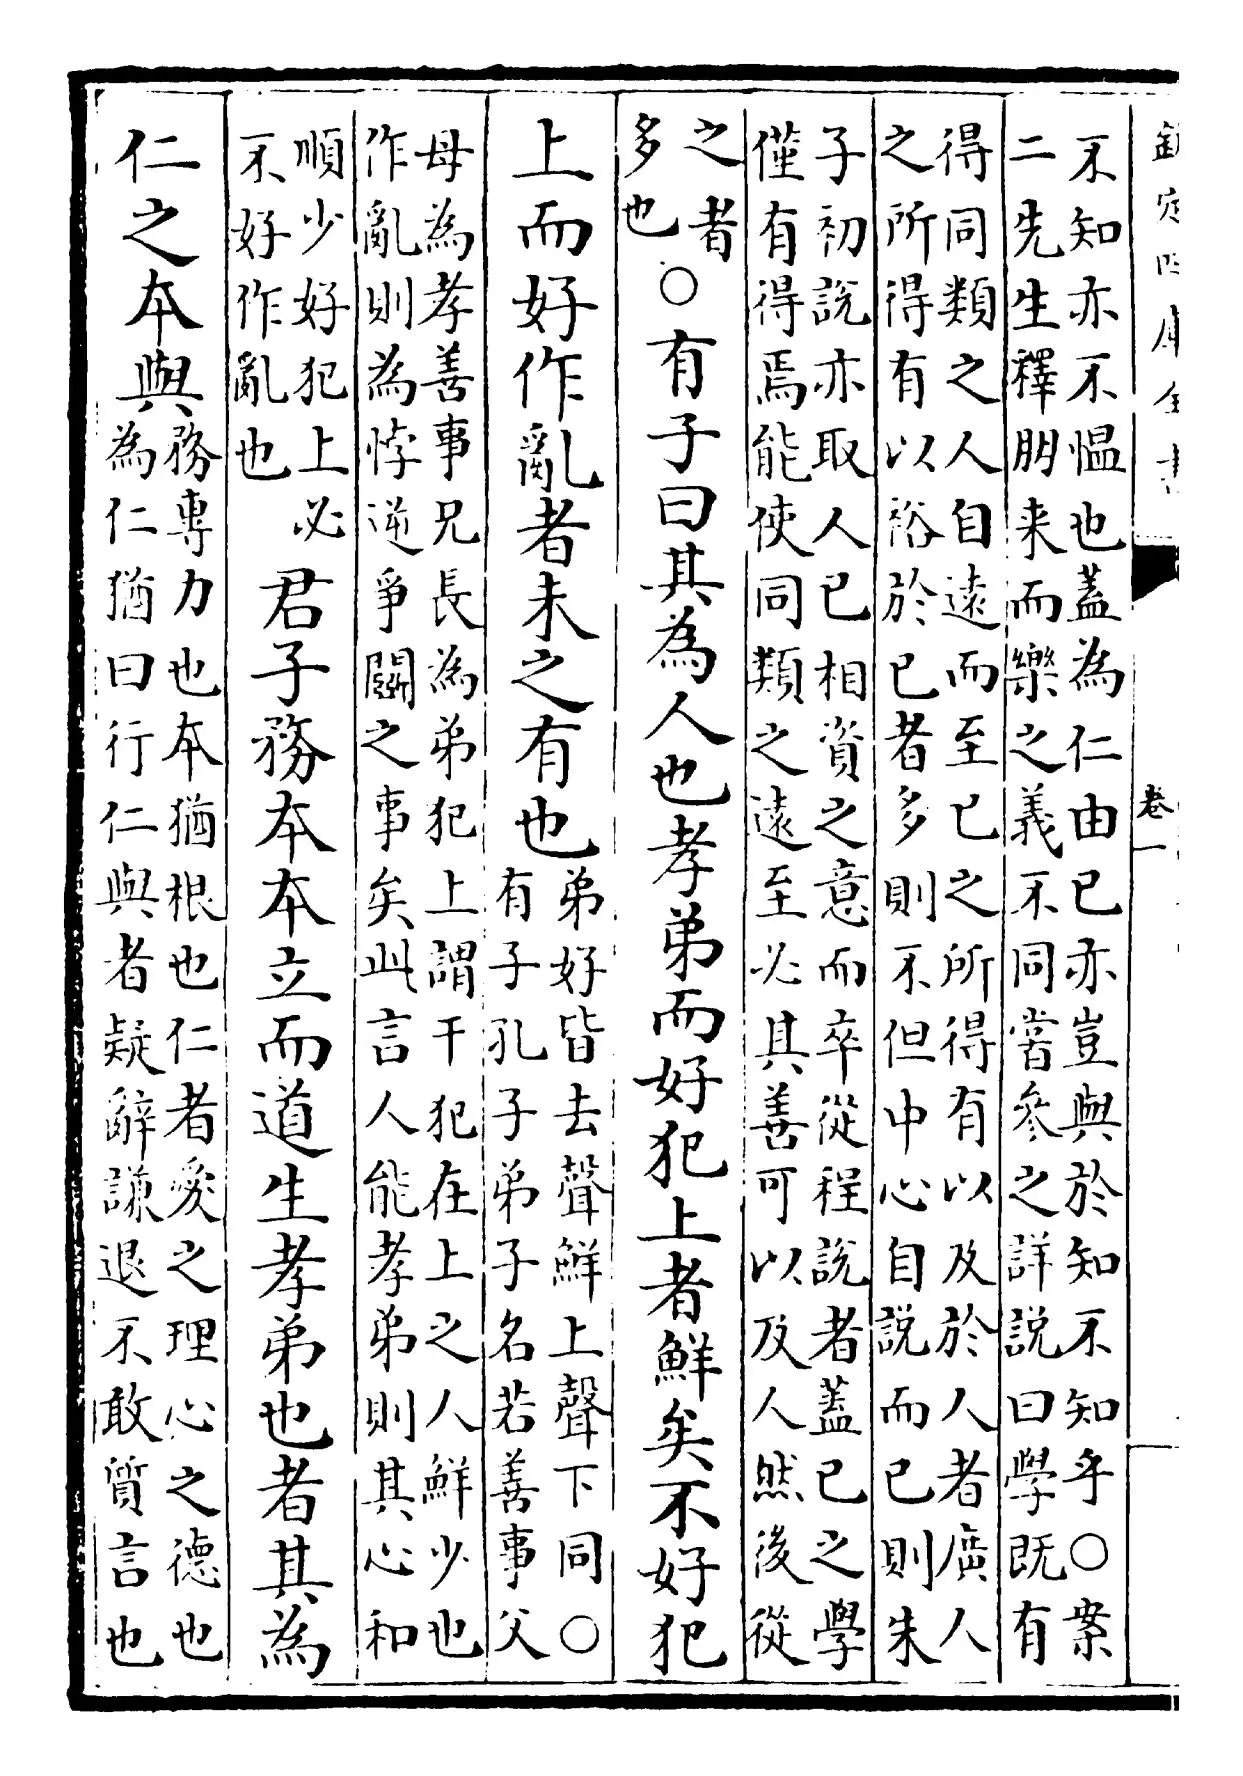 欽定四庫全書
卷一
不知亦不愠也蓋為仁由已亦豈與於知不知乎○案
二先生釋朋来而樂之義不同嘗參之詳說曰學既有
得同類之人自逺而至已之所得有以及於人者廣人
之所得有以裕於已者多則不但中心自說而已則朱
子初說亦取人已相資之意而卒從程說者蓋已之學
僅有得焉能使同類之逺至必其善可以及人然後從
之者
多也
○有子曰其為人也孝弟而好犯上者鮮矣不好犯
上而好作亂者未之有也
弟好皆去聲鮮上聲下同○
有子孔子弟子名若善事父
母為孝善事兄長為弟犯上謂干犯在上之人鮮少也
作亂則為悖逆爭鬬之事矣此言人能孝弟則其心和
順少好犯上必
不好作亂也
君子務本本立而道生孝弟也者其為
仁之本與
務專力也本猶根也仁者愛之理心之德也
為仁猶曰行仁與者疑辭謙退不敢質言也